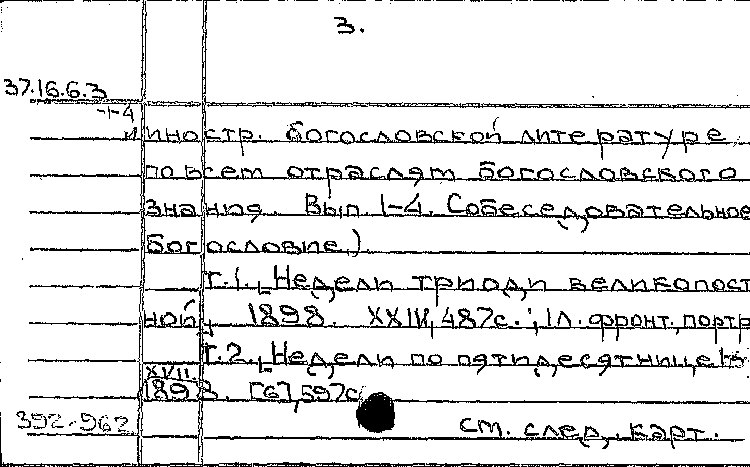 3.
37.16.6.3
-1-4
и иностр. богословской литературе
по всем отраслям богословского
знания. Вып. 1-4. Собеседовательное
богословие.)
Т.1. Недели триоди великопост
ной, 1898. XXIV, 487с.; 1л. фронт. портр
Т.2. Недели по пятидесятнице
XVII.
1898. [6], 597с
392-962
см. след. карт.